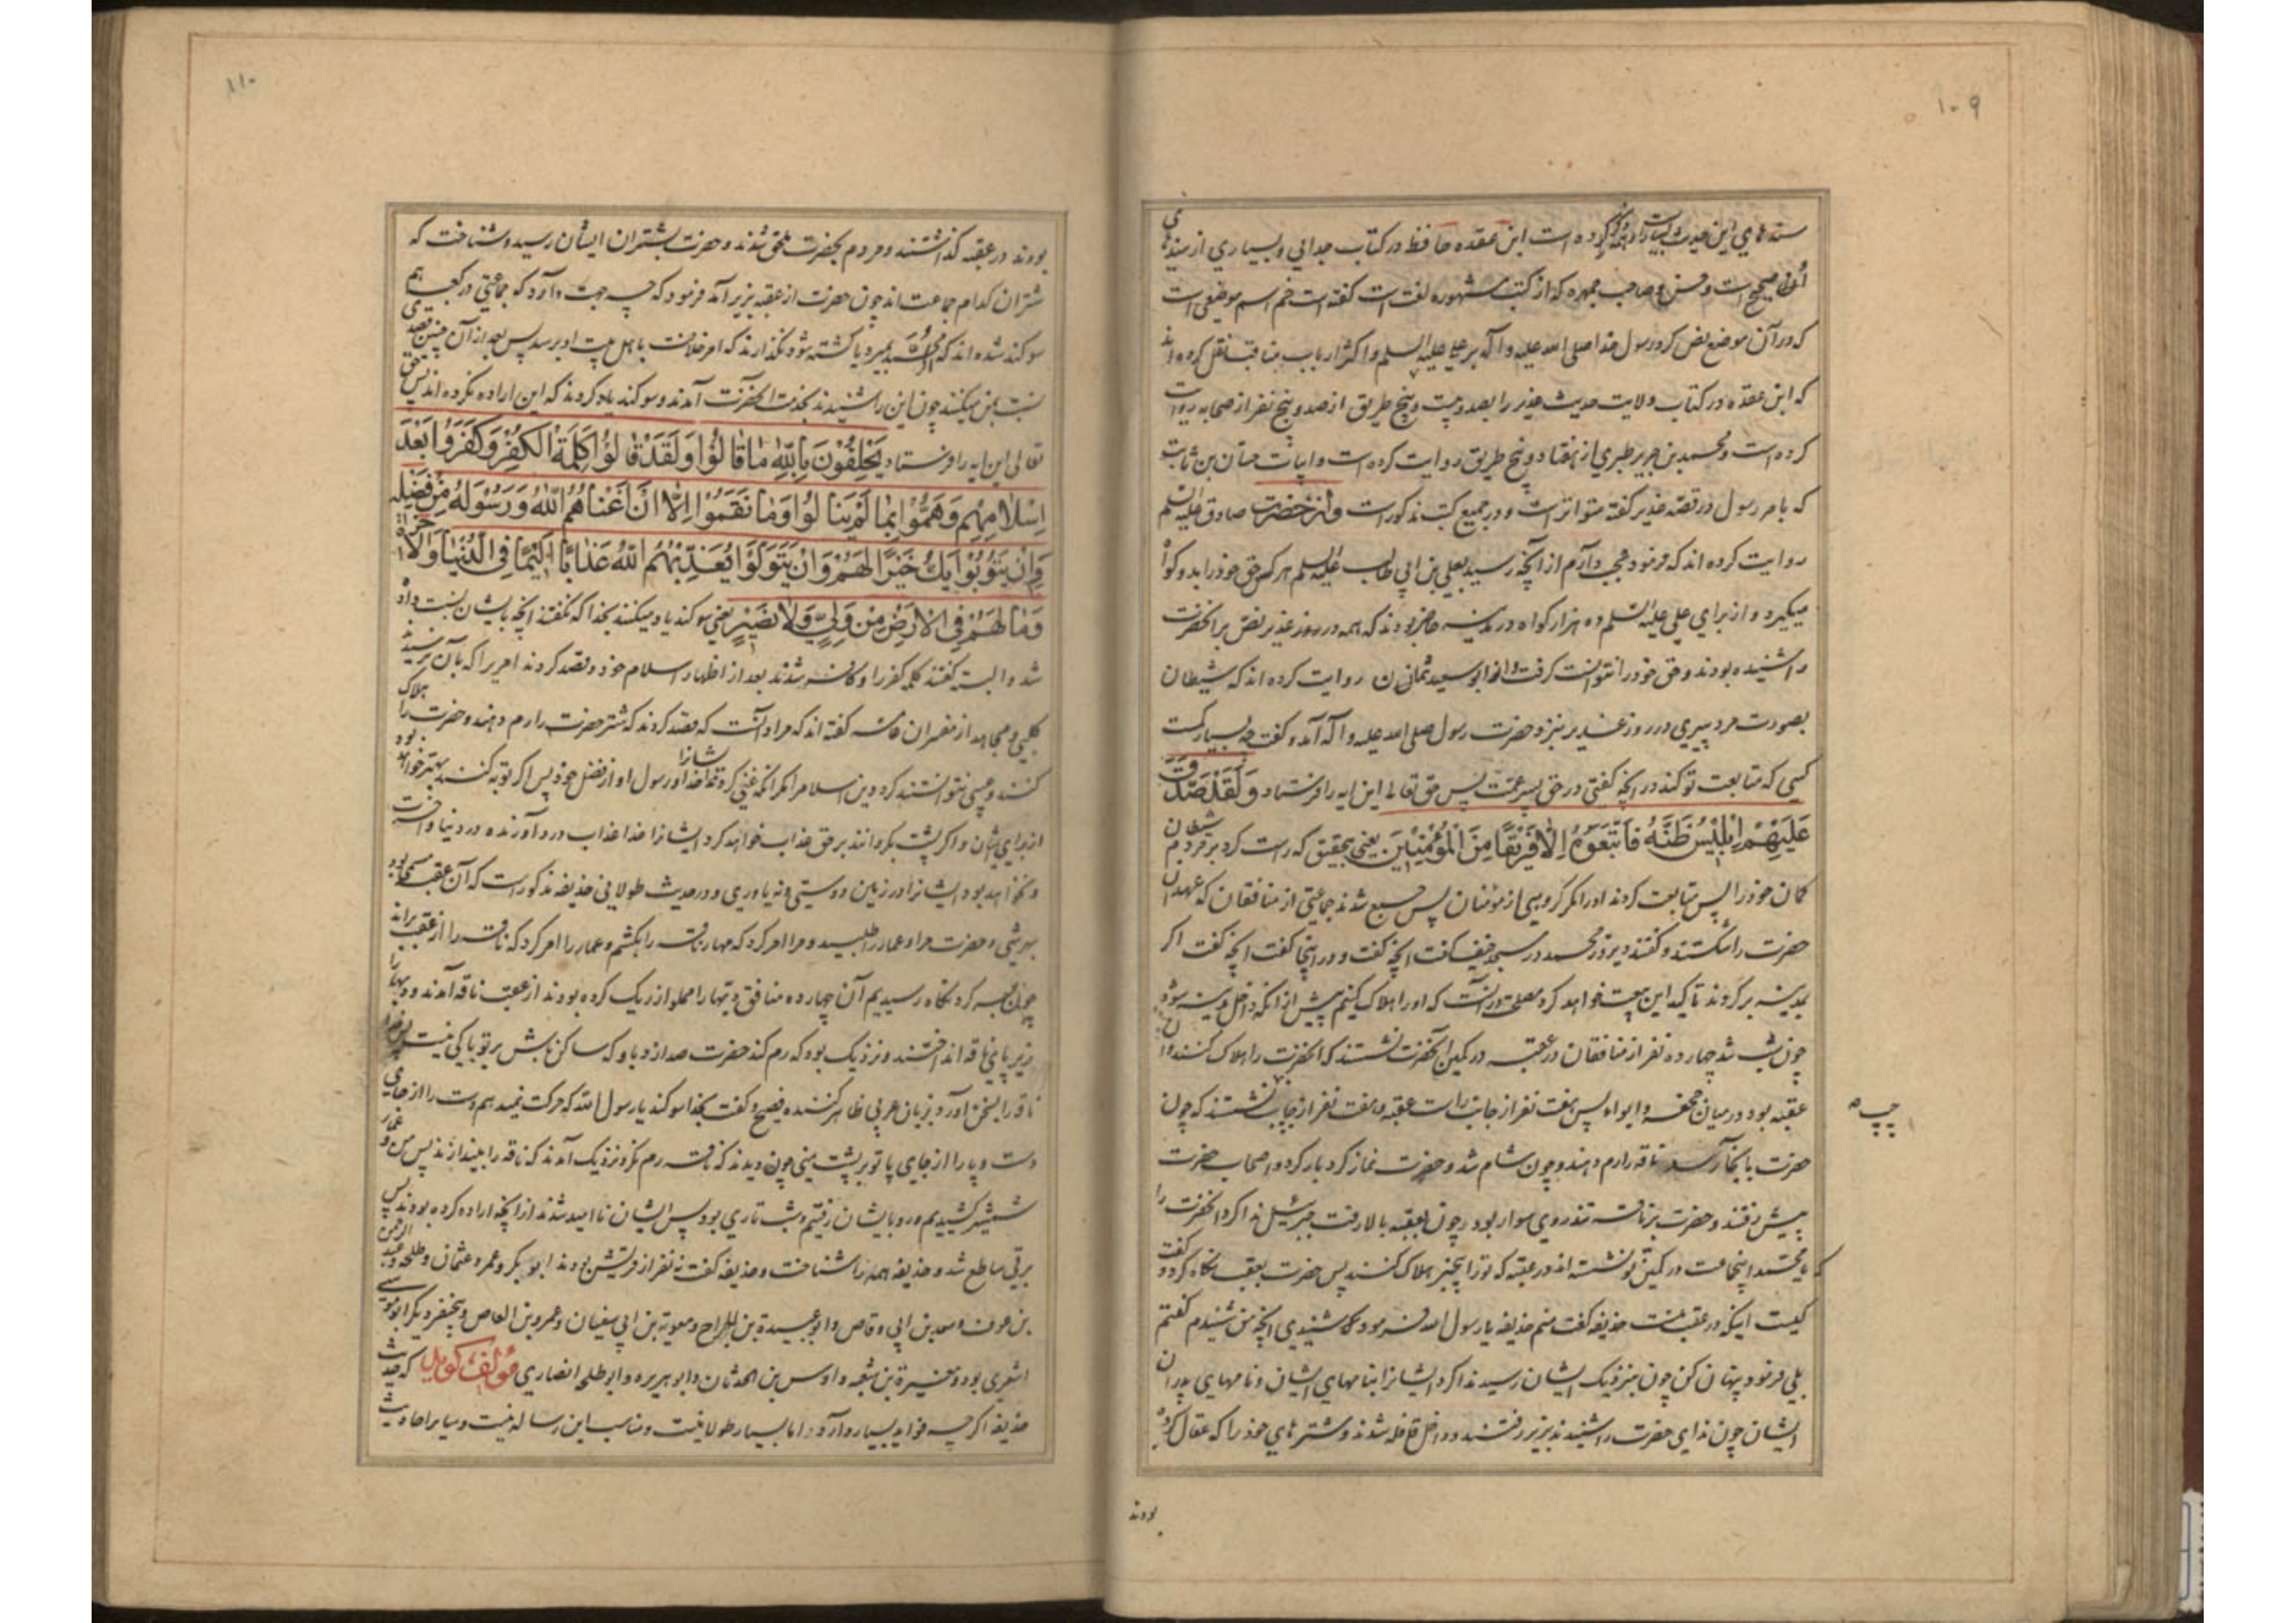 ۱۰۹
سندهای این حدیث بسیار کرده است ابن عقده حافظ در کتاب جدائی و بسیاری از سندهای
آن صحیح است و حسن و صاحب جمهره که از کتب مشهوره لغت است گفته است خم اسم موضعی است
که در آن موضع نص کرد رسول خدا صلی الله علیه و آله بر علی علیه السلم و اکثر ارباب مناقب نقل کرده اند
که ابن عقده در کتاب ولایت حدیث غدیر را بصد و بیست و پنج طریق از صد و پنج نفر از صحابه روایت
کرده است و محمد بن جریر طبری از هفتاد و پنج طریق روایت کرده است و ابیات حسان بن ثابت
که بامر رسول در قصه غدیر گفته متواتر است و در جمیع کتب مذکور است و از حضرت صادق علیه السلم
روایت کرده اند که فرمود عجب دارم از آنچه رسید بعلی بن ابی طالب علیه السلم هر کس حق خود را بدو گواه
میگیرد و از برای علی علیه السلم ده هزار گواه در مدینه حاضر بودند که همه در روز غدیر نص بر آنحضرت
را شنیده بودند و حق خود را نتوانست گرفت و از ابو سعید روایت کرده اند که شیطان
بصورت مرد پیری در روز غدیر بنزد حضرت رسول صلی الله علیه و آله آمد و گفت چه بسیار کمست
کسی که متابعت تو کند در آنچه گفتی در حق پسر عمت پس حق تعالی این ایه را فرستاد وَلَقَدْ صَدَّقَ
عَلَیْهِمْ اِبْلِیْسُ ظَنَّهُ فَاتَّبَعُوْهُ اِلَّا فَرِیْقًا مِنَ الْمُؤْمِنِیْنَ یعنی بتحقیق که راست کرد بر مردم شیطان
کمان خود را پس متابعت کردند او را مگر گروهی از مؤمنان پس جمع شدند جماعتی از منافقان که عهد آن
حضرت را شکستند و گفتند دیروز محمد در مسجد خیف گفت آنچه گفت و در اینجا گفت آنچه گفت اگر
بمدینه برگردند تاکید این بیعت خواهد کرد مصلحت در آنست که او را هلاک کنیم پیش از انکه داخل مدینه شود
چون شب شد چهارده نفر از منافقان در عقبه در کمین آنحضرت نشستند که انحضرت را هلاک کنند و آن
عقبه بود در میان جحفه و ابواء پس هفت نفر از جانب راست عقبه و هفت نفر از جانب نشستند که چون
چپ
حضرت بانجا رسد ناقه را رم دهند و چون شام شد و حضرت نماز کرد بار کرد و اصحاب حضرت
پیش رفتند و حضرت بر ناقه تندروی سوار بود و چون بعقبه بالا رفت جبرئیل ندا کرد انحضرت را
که یا محمد اینجماعت در کمین تو نشسته اند در عقبه که تو را بیخبر هلاک کنند پس حضرت بعقب نگاه کرد و گفت
کیست اینکه در عقب منست حذیفه گفت منم حذیفه یا رسول الله فرمود که شنیدی آنچه من شنیدم گفتم
بلی فرمود پنهان کن چون بنزدیک ایشان رسید ندا کرد ایشانرا بنامهای ایشان و نامهای پدران
ایشان چون ندای حضرت را شنیدند بزیر رفتند و داخل قافله شدند و شترهای خود را که عقال کرده
بودند
۱۱۰
بودند در عقبه گذاشتند و مردم بحضرت ملحق شدند و حضرت بشتران ایشان رسید و شناخت که
شتران کدام جماعت اند چون حضرت از عقبه بزیر آمد فرمود که چه جهت دارد که جماعتی در کعبه هم
سوگند شده اند که اگر محمد بمیرد یا کشته شود نگذارند که امر خلافت باهل بیت او برسد پس بعد از آن چنین قصدی
نسبت بمن میکنند چون این را شنیدند بخدمت آنحضرت آمدند و سوگند یاد کردند که این اراده نکرده اند پس حق
تعالی این ایه را فرستاد یَحْلِفُوْنَ بِاللّٰهِ مَا قَالُوْا وَلَقَدْ قَالُوْا کَلِمَةَ الْکُفْرِ وَکَفَرُوْا بَعْدَ
اِسْلَامِهِمْ وَهَمُّوْا بِمَا لَمْ یَنَالُوْا وَمَا نَقَمُوْا اِلَّا اَنْ اَغْنَاهُمُ اللّٰهُ وَرَسُوْلُهُ مِنْ فَضْلِهِ
فَاِنْ یَتُوْبُوْا یَکُ خَیْرًا لَهُمْ وَاِنْ یَتَوَلَّوْا یُعَذِّبْهُمُ اللّٰهُ عَذَابًا اَلِیْمًا فِی الدُّنْیَا وَالْاٰخِرَةِ
وَمَا لَهُمْ فِی الْاَرْضِ مِنْ وَلِیٍّ وَلَا نَصِیْرٍ یعنی سوگند یاد میکنند بخدا که نگفتند آنچه بایشان نسبت داده
شد و البته گفتند کلمه کفر را و کافر شدند بعد از اظهار اسلام خود و قصد کردند امریرا که بآن نرسیدند
کلبی و مجاهد از مفسران عامه گفته اند که مراد آنست که قصد کردند که شتر حضرت را رم دهند و حضرت را هلاک
کنند و عیبی نتوانستند کرد دین اسلام را مگر آنکه غنی کرد ایشانرا خدا و رسول او از فضل خود پس اگر توبه کنند بهتر خواهد بود
از برای ایشان و اگر پشت بگردانند بر حق عذاب خواهد کرد ایشانرا خدا عذاب دردآورنده در دنیا و آخرت
و نخواهد بود ایشانرا در زمین دوستی و نه یاوری و در حدیث طولانی حذیفه مذکور است که آن عقبه مسمی بود
بهرشی و حضرت مرا و عمار را طلبید و مرا امر کرد که مهار ناقه را بکشم و عمار را امر کرد که ناقه را از عقب براند
چون بسر گردنگاه رسیدیم آن چهارده منافق دبها را مملو از ریگ کرده بودند از عقب ناقه آمدند و دبها را
زیر پای ناقه انداختند و نزدیک بود که رم کند حضرت صدا زد باو که ساکن باش بر تو باکی نیست پس خدا
ناقه را بسخن آورد بزبان عربی ظاهر کننده فصیح و گفت بخدا سوگند یا رسول الله که حرکت نمیدهم دست را از جای
دست و پا را از جای پا تو بر پشت منی چون دیدند که ناقه رم نکرد نزدیک آمدند که ناقه را بیندازند پس من و عمار
شمشیر کشیدیم و رو بایشان رفتیم و شب تاری بود پس ایشان ناامید شدند از آنچه اراده کرده بودند پس
برقی ساطع شد و حذیفه همه را شناخت و حذیفه گفت نه نفر از قریش بودند ابو بکر و عمر و عثمان و طلحه و عبد الرحمن
بن عوف و سعد بن ابی وقاص و ابو عبیدة بن الجراح و معویة بن ابی سفیان و عمرو بن العاص و پنجنفر دیگر ابو موسی
اشعری بود و مغیرة بن شعبه و اوس بن الحدثان و ابو هریره و ابو طلحه انصاری مؤلف گوید که حدیث
حذیفه اگر چه فواید بسیار دارد اما بسیار طولانیست و مناسب این رساله نیست و سایر احادیث